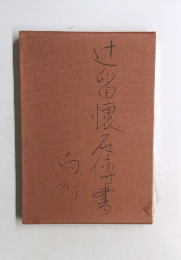 辻留懐石傳書
向附